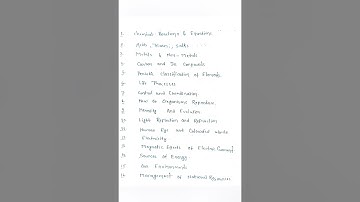 1 Chemical Reactions & Equations
2 Acids, Bases, Salts
3 Metals & Non-Metals
4 Carbon and Its Compounds
5 Periodic Classification of Elements
6 Life Processes
7 Control and Coordination
8 How do Organisms Reproduce
9 Heredity And Evolution
10 Light Reflection and Refraction
11 Human Eye and Colourful World
12 Electricity
13 Magnetic Effects of Electric Current
14 Sources of Energy
15 Our Environment
16 Management of Natural Resources